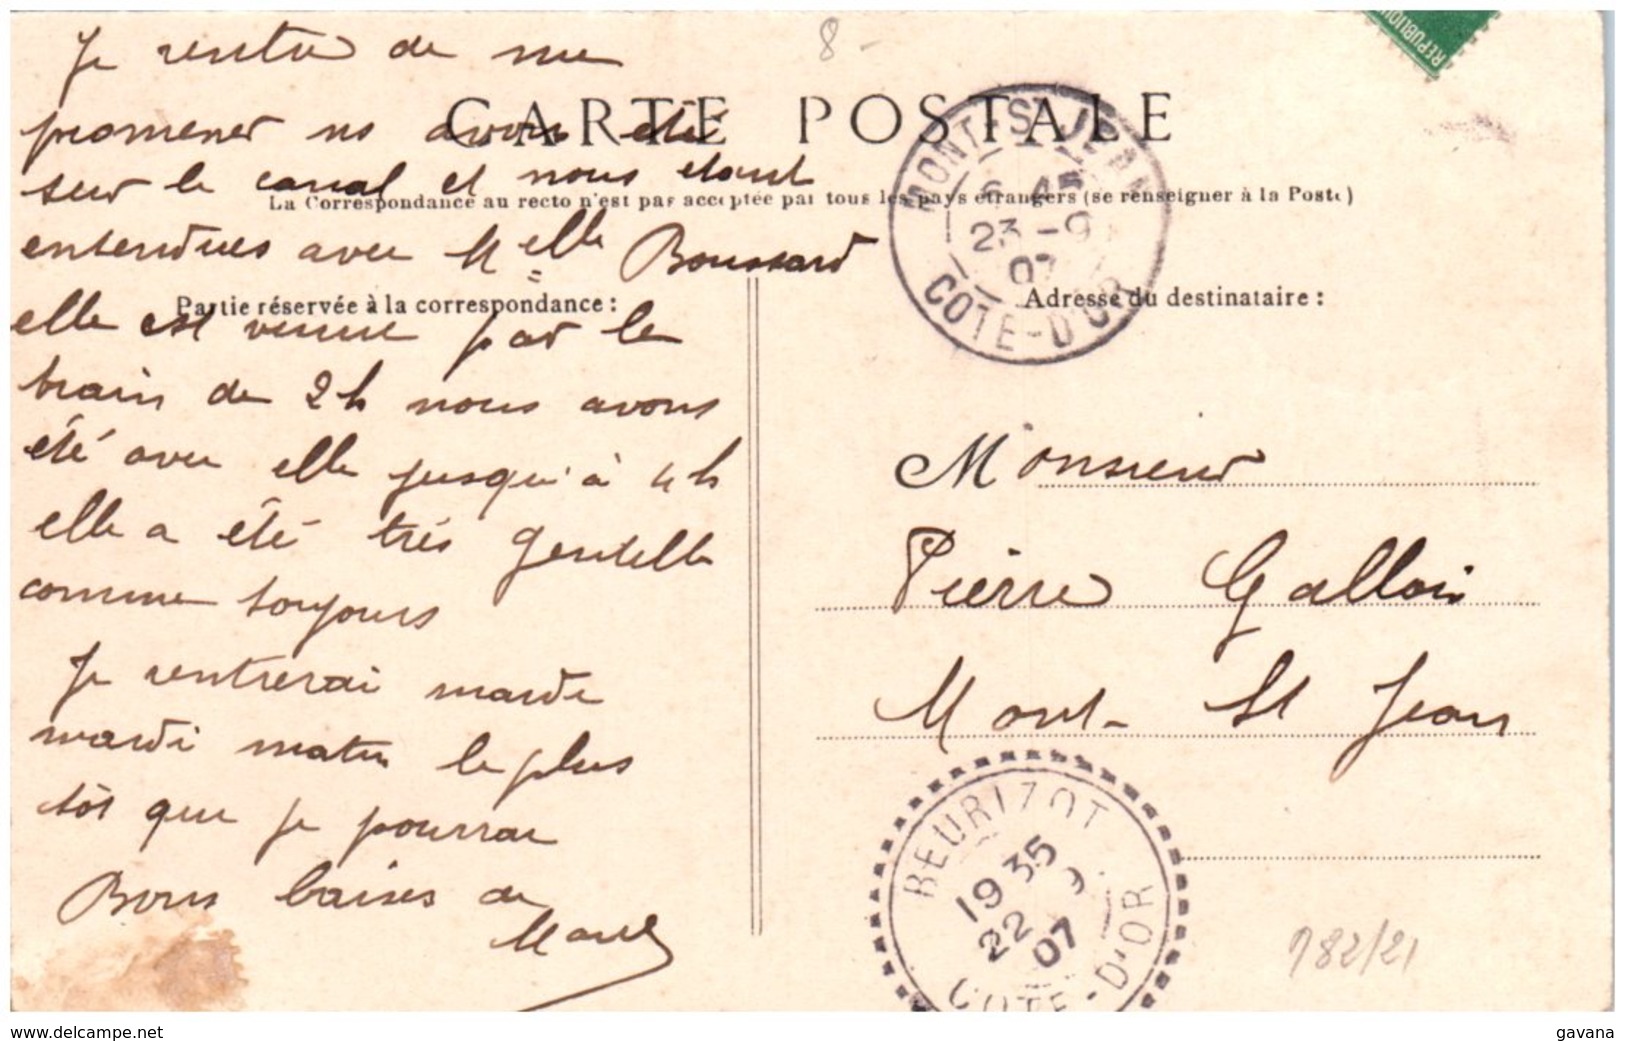 8-
REPUBLIQUE
CARTE POSTALE
La Correspondance au recto n'est pas acceptée par tous les pays étrangers (se renseigner à la Poste)
Partie réservée à la correspondance :
Je rentre de me
promener ns avons été
sur le canal et nous etant
entendues avec Melle Boussard
elle est venue par le
train de 2h nous avons
été avec elle jusqu'à 4h
elle a été très gentille
comme toujours
Je rentrerai mardi
mardi matin le plus
tôt que je pourrai
Bons baisers de
Adresse du destinataire :
Monsieur
Pierre Gallois
Mont- St Jean
MONT-ST-JEAN
6 45
23 -9
07
COTE-D'OR
BEURIZOT
19 35
22 9
07
COTE-D'OR
782/21
www.delcampe.net
gavana